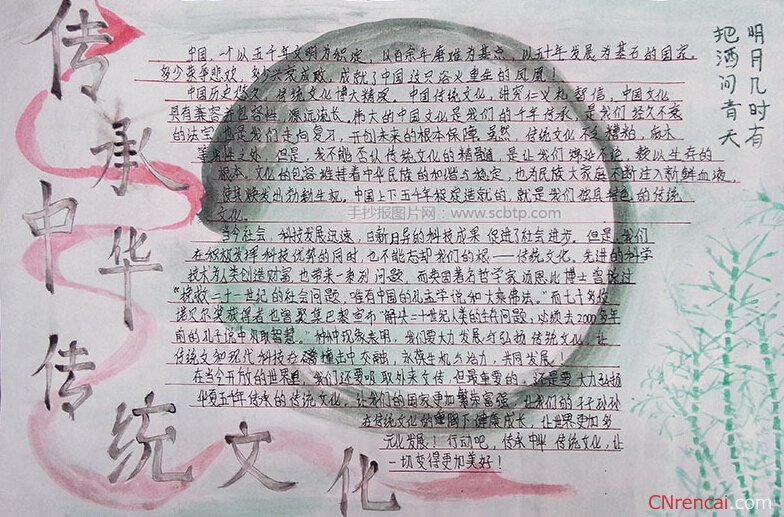 传承中华传统文化
明月几时有
把酒问青天
中国,一个以五千年文明为积淀,以百余年磨难为基点,以五十年发展为基石的国家。
多少乘平悲欢,多少兴衰成败,成就了中国这只浴火重生的凤凰!
中国历史悠久,传统文化博大精深。中国传统文化,讲究仁义礼智信,中国文化
具有兼容并包容性,源远流长。伟大的中国文化是我们的千年传承,是我们经久不衰
的法宝,也是我们走向复习,开创未来的根本保障。虽然,传统文化不乏糟粕,麻木
等劣性之处,但是,我不能否认传统文化的精普通,是让我们绵延不绝,赖以生存的
根本。文化的包容维持着中华民族的和谐与稳定,也为民族大家庭不断注入新鲜血液,
使其焕发出勃勃生机。中国上下五千年积淀造就的,就是我们独具特色的传统
文化。
手抄报图片网:www.scbtp.com
当今社会,科技发展迅速,日新月异的科技成果促进了社会进步。但是,我们
在积极发挥科技优势的同时,也不能忘却我们的根——传统文化。先进的科学
技术为人类创造财富,也带来一系列问题,而英国著名哲学家汤恩比博士曾说过
"挽救二十一世纪的社会问题,唯有中国的孔孟学说和大乘佛法。"而七十多位
诺贝尔奖获得者也曾聚集巴黎宣布"解决二十世纪人类的生存问题,必须去2000多年
前的孔子说中汲取智慧。"种种现象表明,我们要大力发展与弘扬传统文化,让
传统文和现代科技在撞击中交融,永葆生机与活力,共同发展!
在当今开放的世界里,我们还要吸取外来文传,但最重要的,还是要大力弘扬
华夏五千年传承的传统文化,让我们的国家更加繁荣富强,让我们的子子孙孙
在传统文化的熏陶下健康成长,让世界更加多
元化发展!行动吧,传承中华传统文化,让
一切变得更加美好!
CNrencai.com